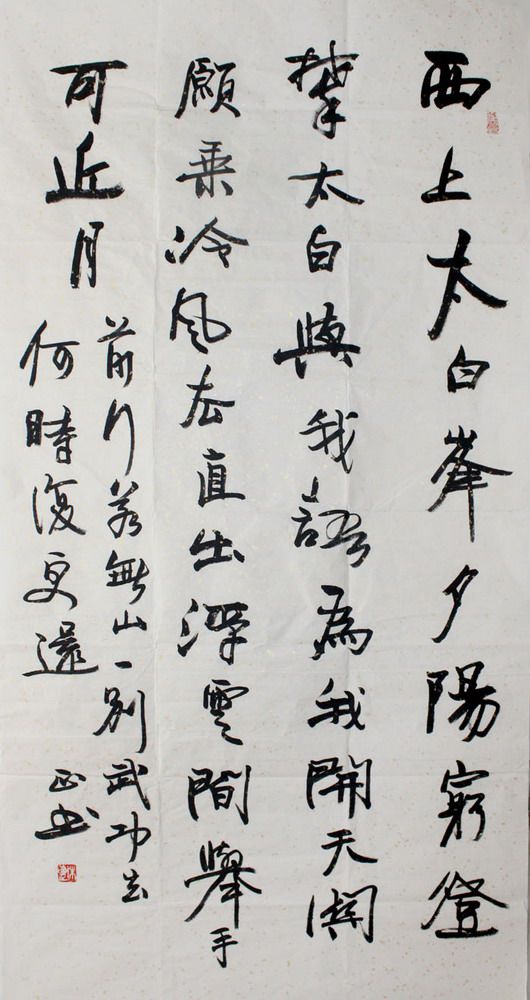 西上太白峯夕陽窮登
攀太白與我語為我開天關
願乘冷風去直出深雲間舉手
可近月
前行若無山一別武功去
何時復更還
正书